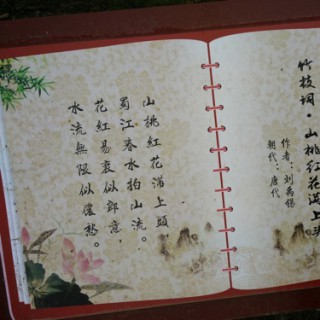 竹枝词·山桃红花满上头
作者：刘禹锡
朝代：唐代
山桃紅花滿上頭
蜀江春水拍山流。
花紅易衰似郎意，
水流無限似儂愁。